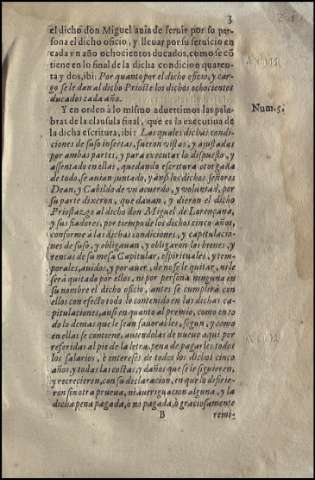 3
el dicho don Miguel auia de seruir por su per-
sona el dicho oficio, y lleuar por su seruicio en
cada vn año ochocientos ducados, como se cõ
tiene en lo final de la dicha condicion quaren-
ta y dos, ibi: Por quanto por el dicho oficio, y car-
go se le dan al dicho Prioste los dichos ochocientos
ducados cada año.
Y en orden à lo mismo aduertimos las pala-
bras de la clausula final, que es la executiua de
la dicha escritura, ibi: Las quales dichas condi-
ciones de suso insertas, fueron vistas, y ajustadas
por ambas partes, y para executar lo dispuesto, y
assentado en ellas, quedando escritura otorgada
de todo, se auian juntado, y anssi los dichos señores
Dean, y Cabildo de vn acuerdo, y voluntad, por
su parte dixeron, que dauan, y dieron el dicho
Priostazgo al dicho don Miguel de Lorençana,
y sus fiadores, por tiempo de los dichos cinco años,
conforme à las dichas condiciones, y capitulacio-
nes de suso, y obligauan, y obligaron los bienes, y
rentas de su mesa Capitular, espirituales, y tem-
porales, auidos, y por auer, de no se le quitar, ni le
serà quitado por ellos, ni por persona ninguna en
su nombre el dicho oficio, antes se cumplirà con
ellos con efecto todo lo contenido en las dichas ca-
pitulaciones, ansi en quanto al premio, como en to
do lo demas que le sean fauorables, segun, y como
en ellas se contiene, auiendolas de nueuo aqui por
referidas al pie de la letra, pena de pagarles todos
los salarios, è intereses de todos los dichos cinco
años, y todas las costas, y daños que se le siguieren,
y recrecieren, con su declaracion, en que lo difirie-
ron sin otra prueua, ni aueriguacion alguna, y la
dicha pena pagada, ò no pagada, ò graciosamente
B remi-
Num. 5.